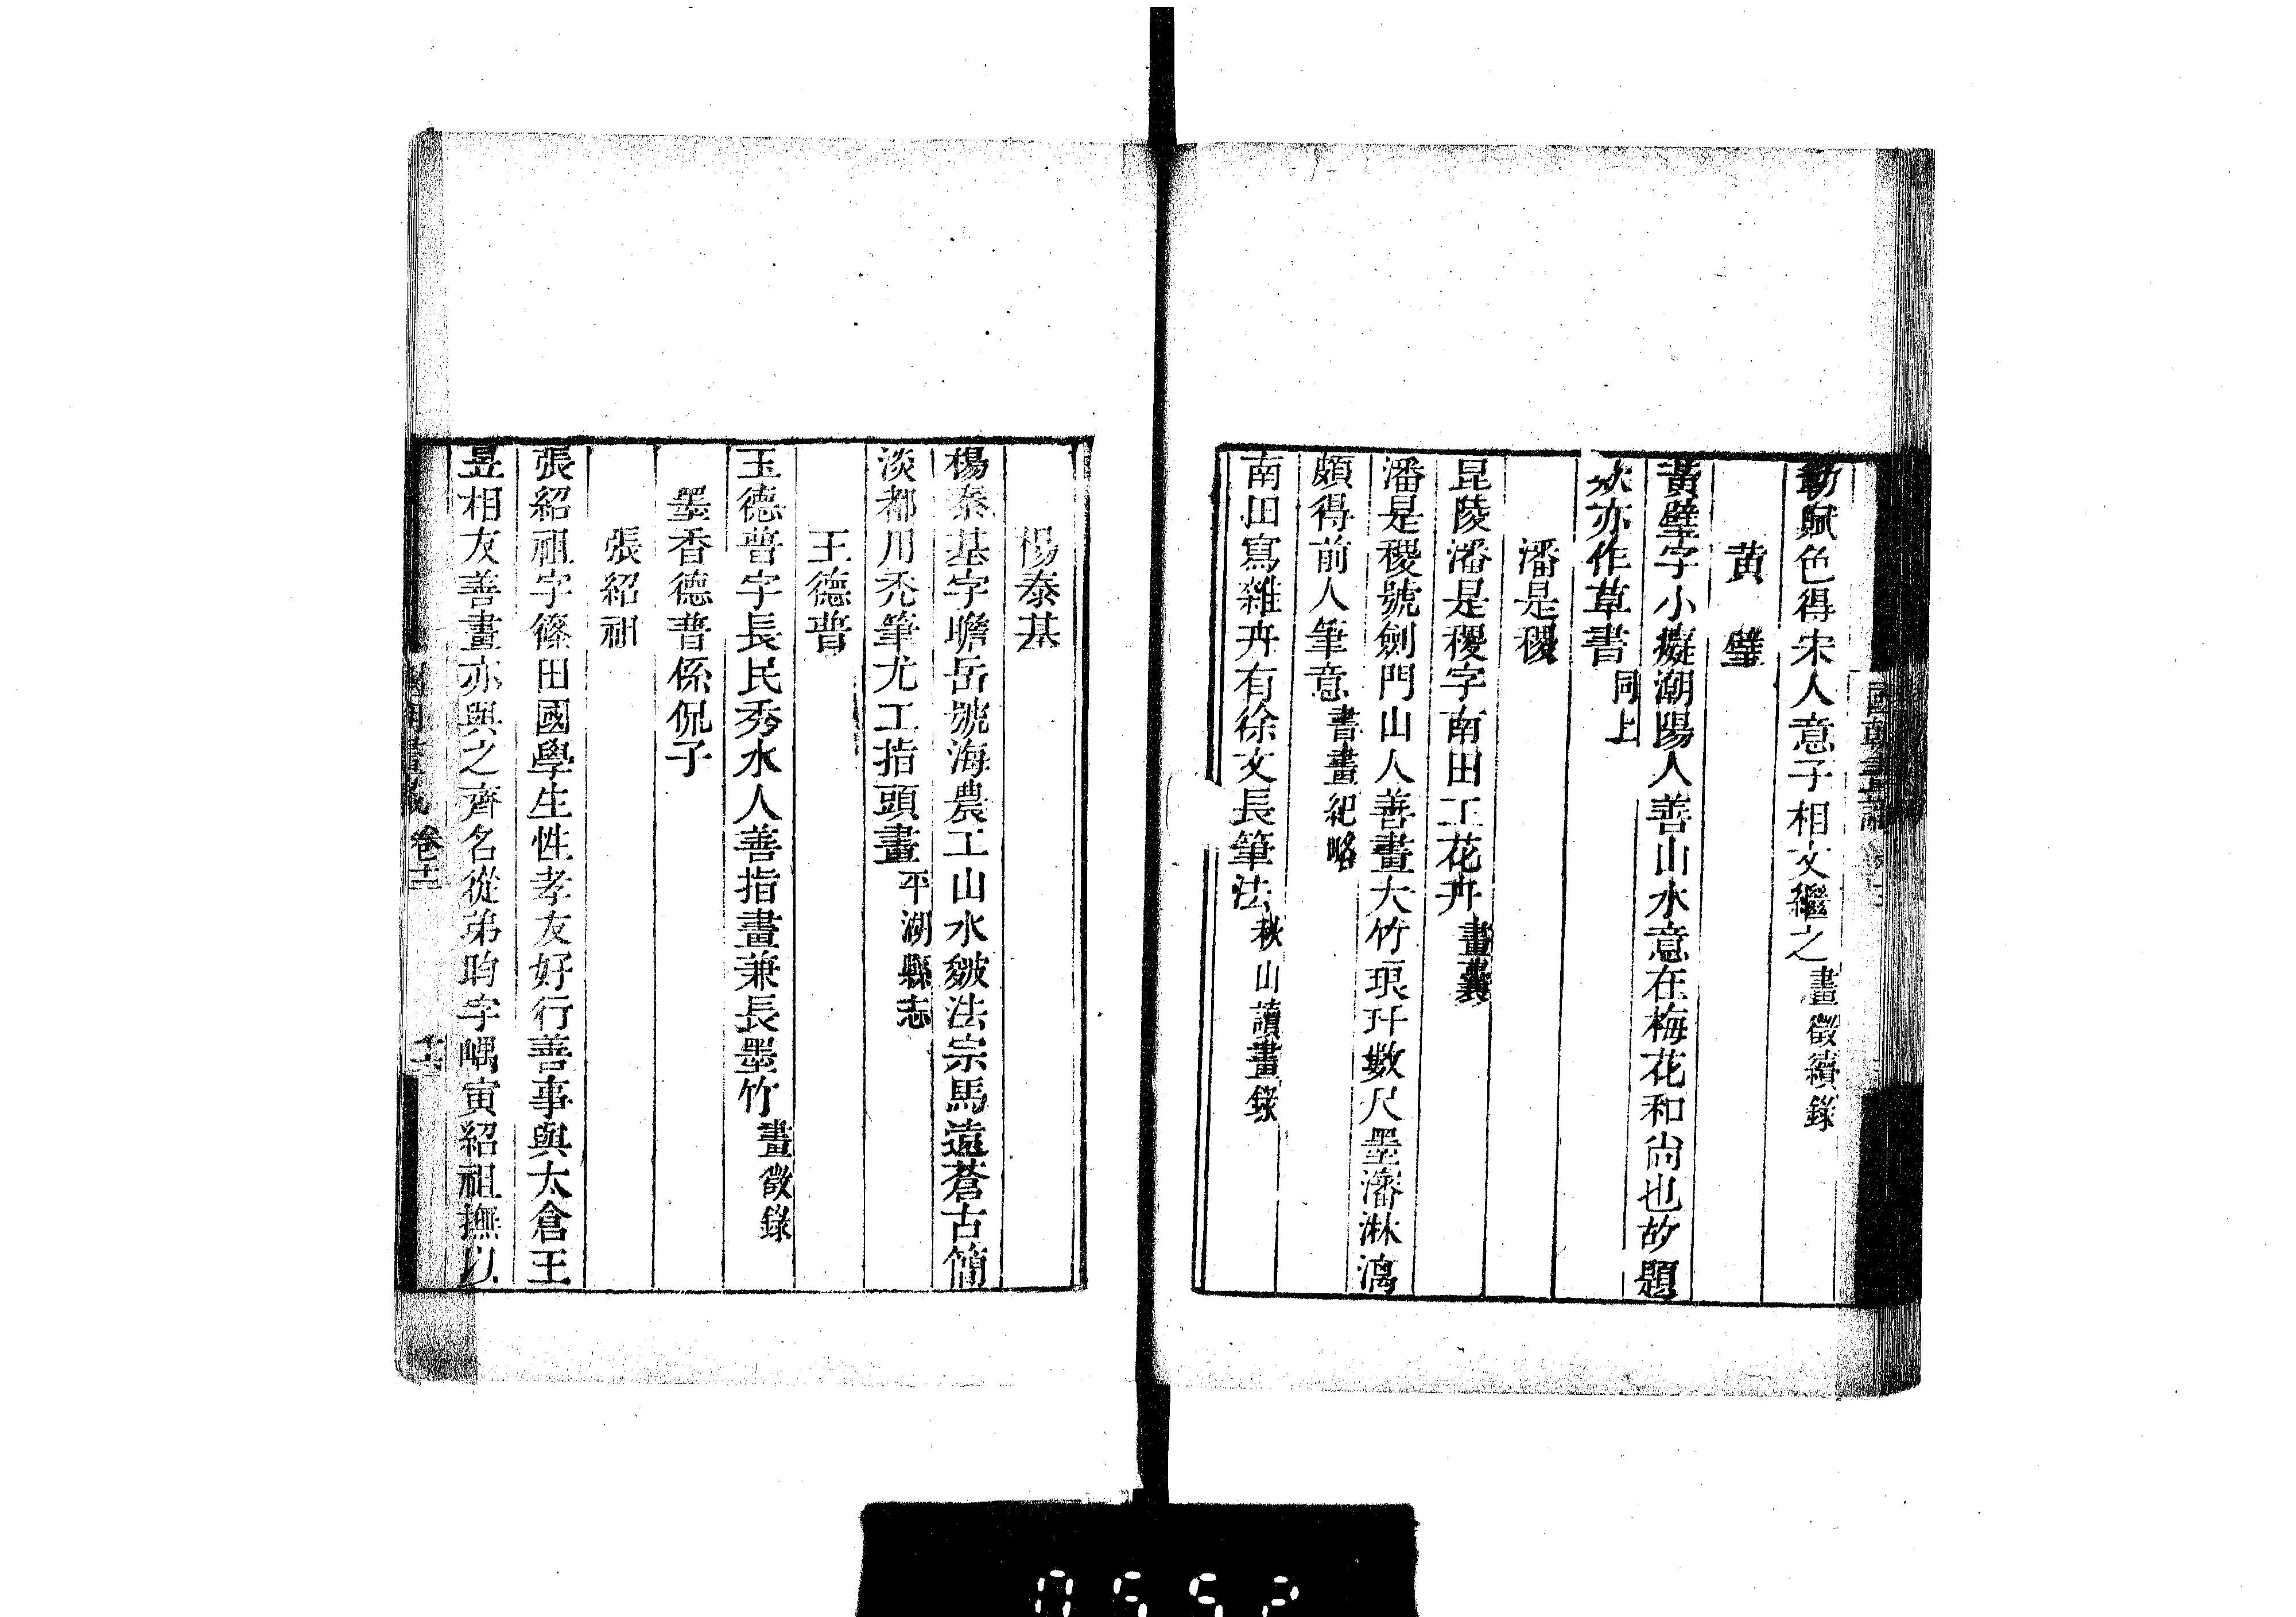 動賦色得宋人意子相文繼之畫徵續錄
黃璧
黃璧字小癡潮陽人善山水意在梅花和尙也故題
欵亦作草書同上
潘是稷
昆陵潘是稷字南田工花卉畫囊
潘是稷號劍門山人善畫大竹琅玕數尺墨瀋淋漓
頗得前人筆意書畫紀略
南田寫雜卉有徐文長筆法秋山讀畫錄
楊泰基
楊泰基字瞻岳號海農工山水皴法宗馬遠蒼古簡
淡都用禿筆尤工指頭畫平湖縣志
王德普
王德普字長民秀水人善指畫兼長墨竹畫徵錄
墨香德普係侃子
張紹祖
張紹祖字篠田國學生性孝友好行善事與太倉王
昱相友善畫亦與之齊名從弟昀字嵎寅紹祖撫以
卷十二
0552